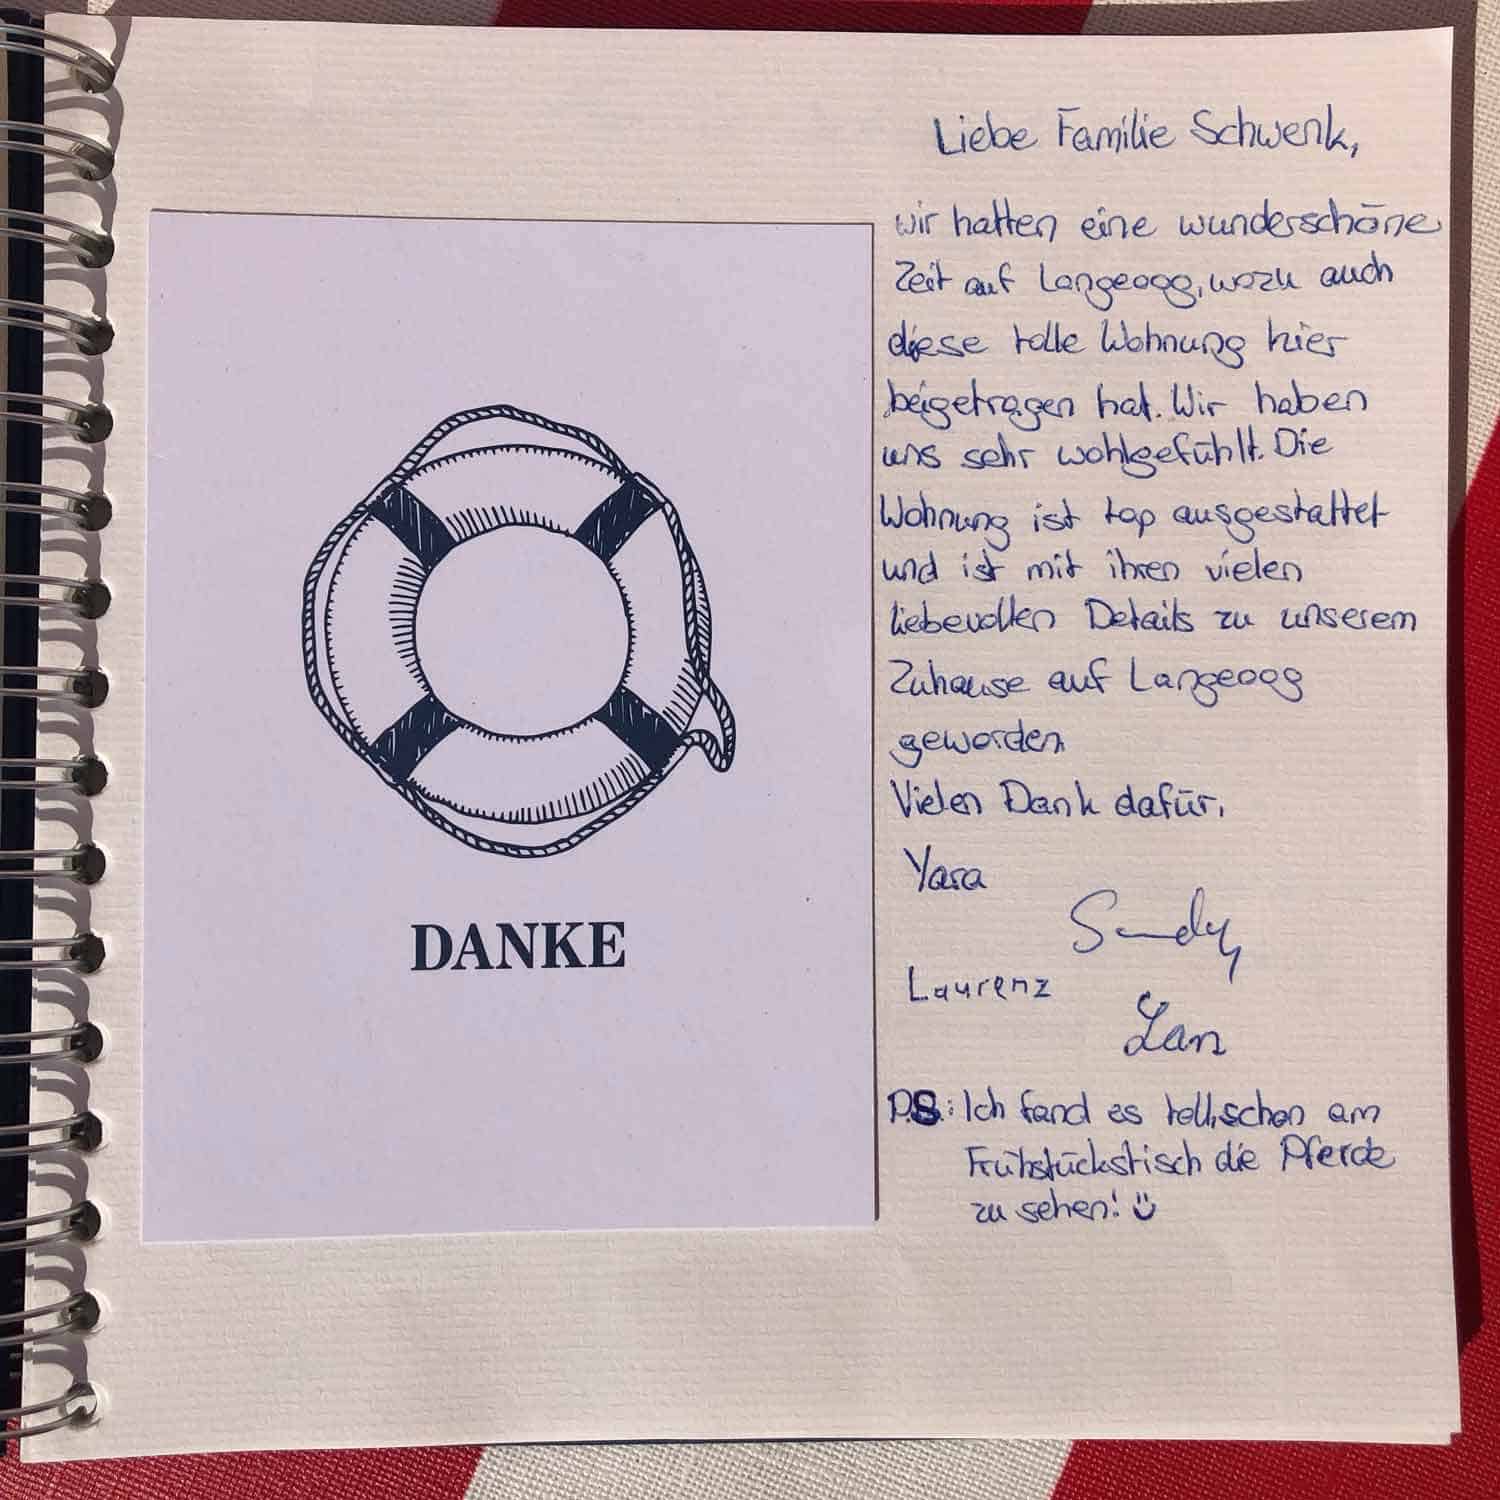 DANKE
Liebe Familie Schwenk,
wir hatten eine wunderschöne
Zeit auf Langeoog, wozu auch
diese tolle Wohnung hier
beigetragen hat. Wir haben
uns sehr wohlgefühlt. Die
Wohnung ist top ausgestattet
und ist mit ihren vielen
liebevollen Details zu unserem
Zuhause auf Langeoog
geworden
Vielen Dank dafür,
Yara
Sandy
Laurenz
Jan
P.S.: Ich fand es toll, schon am
Frühstückstisch die Pferde
zu sehen! ☺